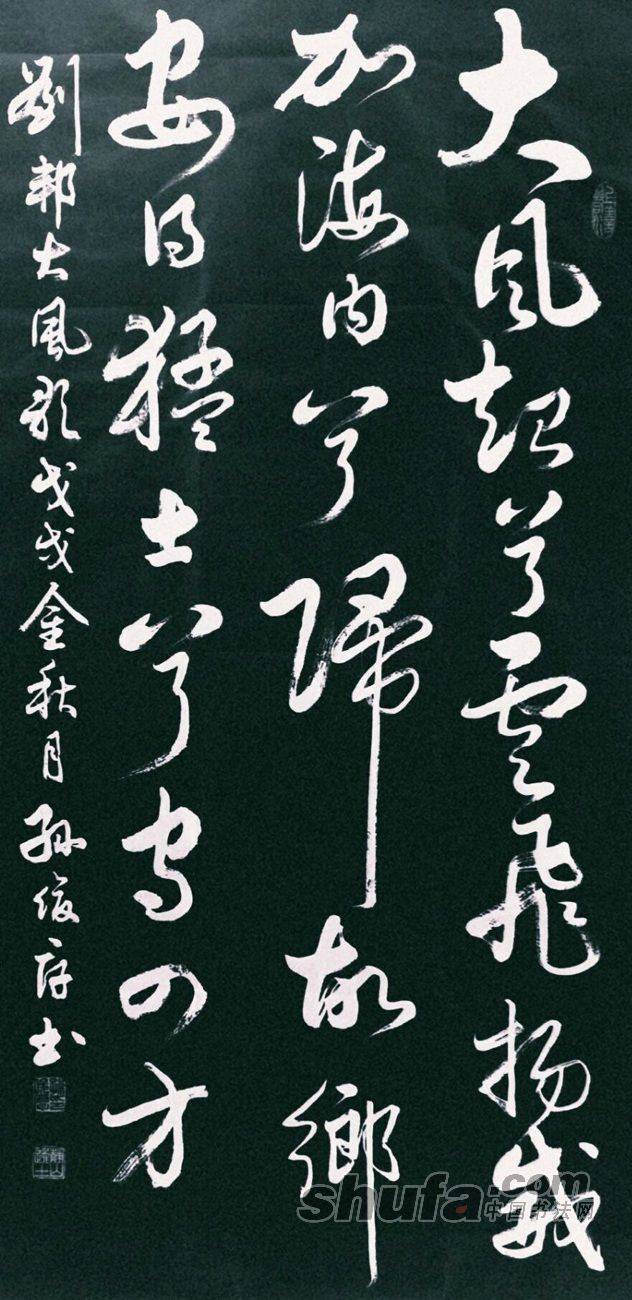 大风起兮雲飛扬威
加海内兮歸故鄉
安得猛士兮守四方
劉邦大風歌戊戌金秋月孫俊存书
shufa.com
中国书法网